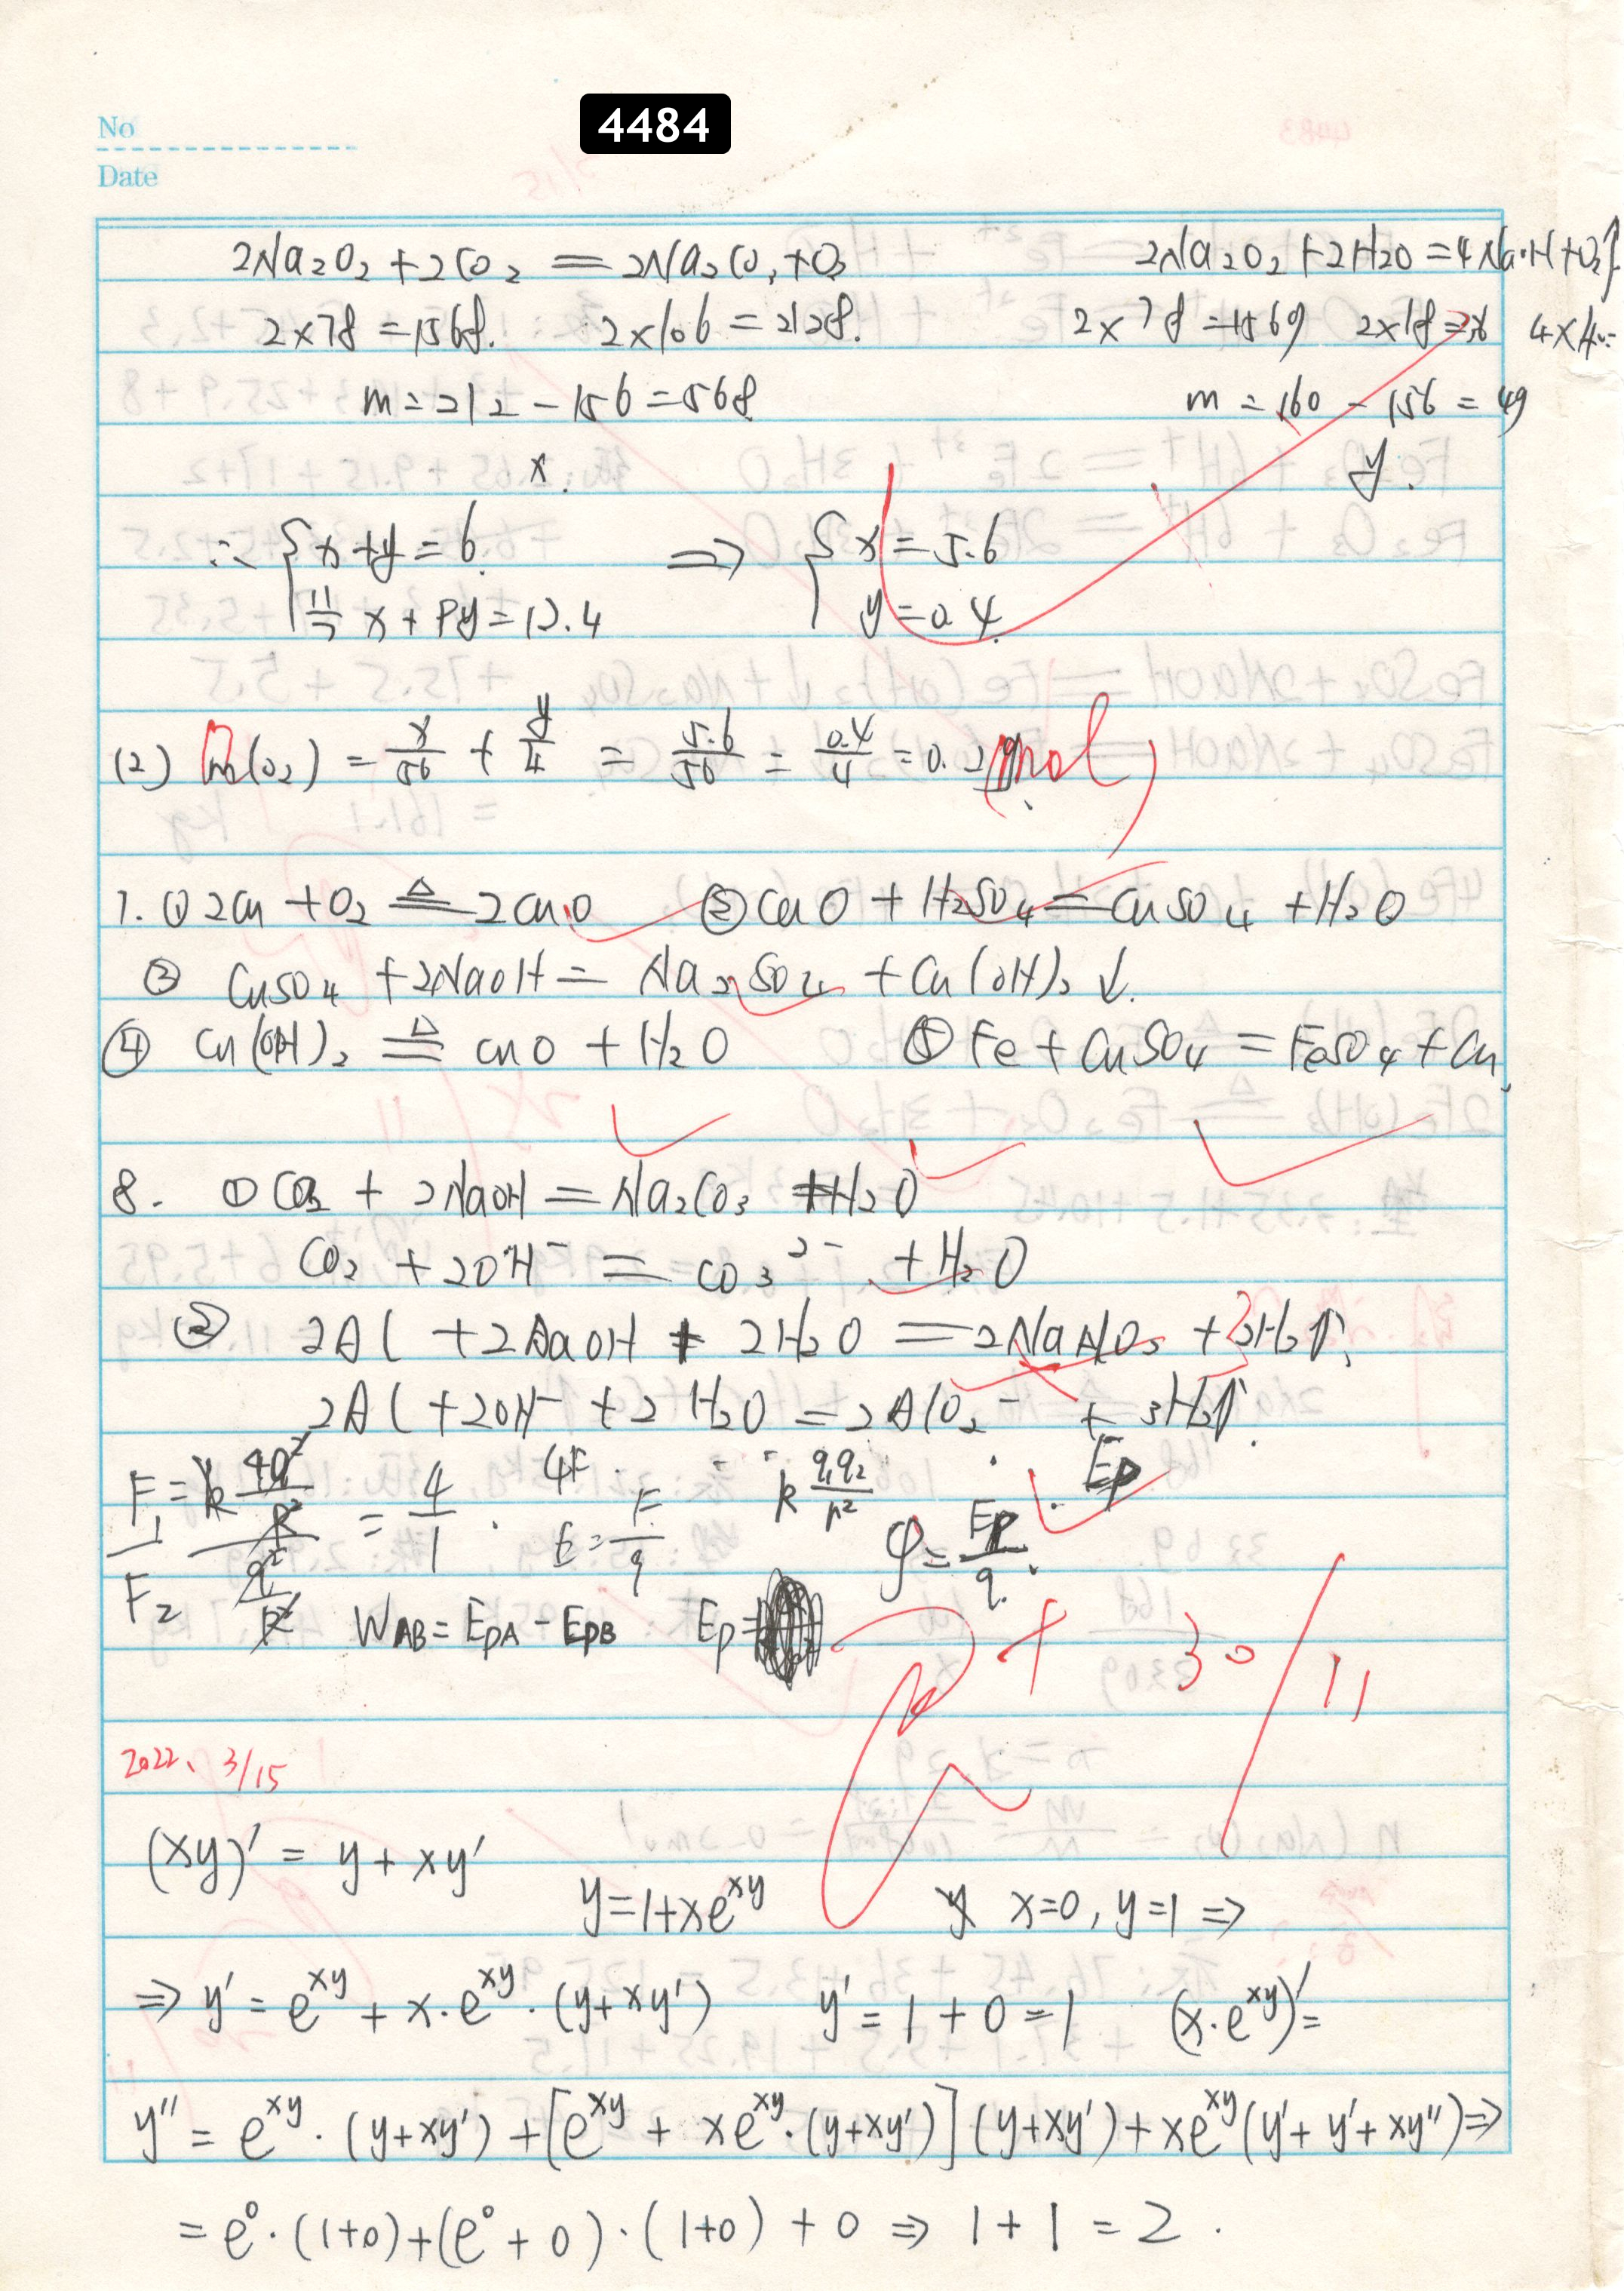 4484
No
Date
2Na₂O₂ + 2CO₂ = 2Na₂CO₃ + O₂
2Na₂O₂ + 2H2O = 4NaOH + O₂↑
2×78 = 156g. 2×106 = 212g.
2×78 = 156g 2×18 = 36 4×40=
m = 212 - 156 = 56g
m = 160 - 156 = 4g
x. y.
∴ { x + y = 6 ⇒ { x = 5.6
11/7 x + 8y = 12.4 y = 0.4
(2) n(O₂) = x/56 + y/4 = 5.6/56 = 0.4/4 = 0.2 mol
7. ① 2Cu + O₂ ≜ 2CuO ② CuO + H₂SO₄ = CuSO₄ + H₂O
③ CuSO₄ + 2NaOH = Na₂SO₄ + Cu(OH)₂↓.
④ Cu(OH)₂ ≜ CuO + H₂O ⑤ Fe + CuSO₄ = FeSO₄ + Cu
8. ① CO₂ + 2NaOH = Na₂CO₃ + H₂O
CO₂ + 2OH⁻ = CO₃²⁻ + H₂O
② 2Al + 2NaOH + 2H₂O = 2NaAlO₂ + 3H₂↑
2Al + 2OH⁻ + 2H₂O = 2AlO₂⁻ + 3H₂↑.
F₁/F₂ = (k 4q²/R²)/(q²/R²) = 4/1 . 4F . E = F/q k q₁q₂/r² φ = Ep/q . Ep
W_AB = E_pA - E_pB Ep =
+ 30/11
2022、3/15
(xy)' = y + xy'
y = 1 + xe^{xy} y x=0, y=1 ⇒
⇒ y' = e^{xy} + x·e^{xy}·(y+xy') y' = 1 + 0 = 1 (x·e^{xy})' =
y'' = e^{xy}·(y+xy') + [e^{xy} + xe^{xy}·(y+xy')](y+xy') + xe^{xy}(y' + y' + xy'') ⇒
= e⁰·(1+0)+(e⁰+0)·(1+0) + 0 ⇒ 1 + 1 = 2 .